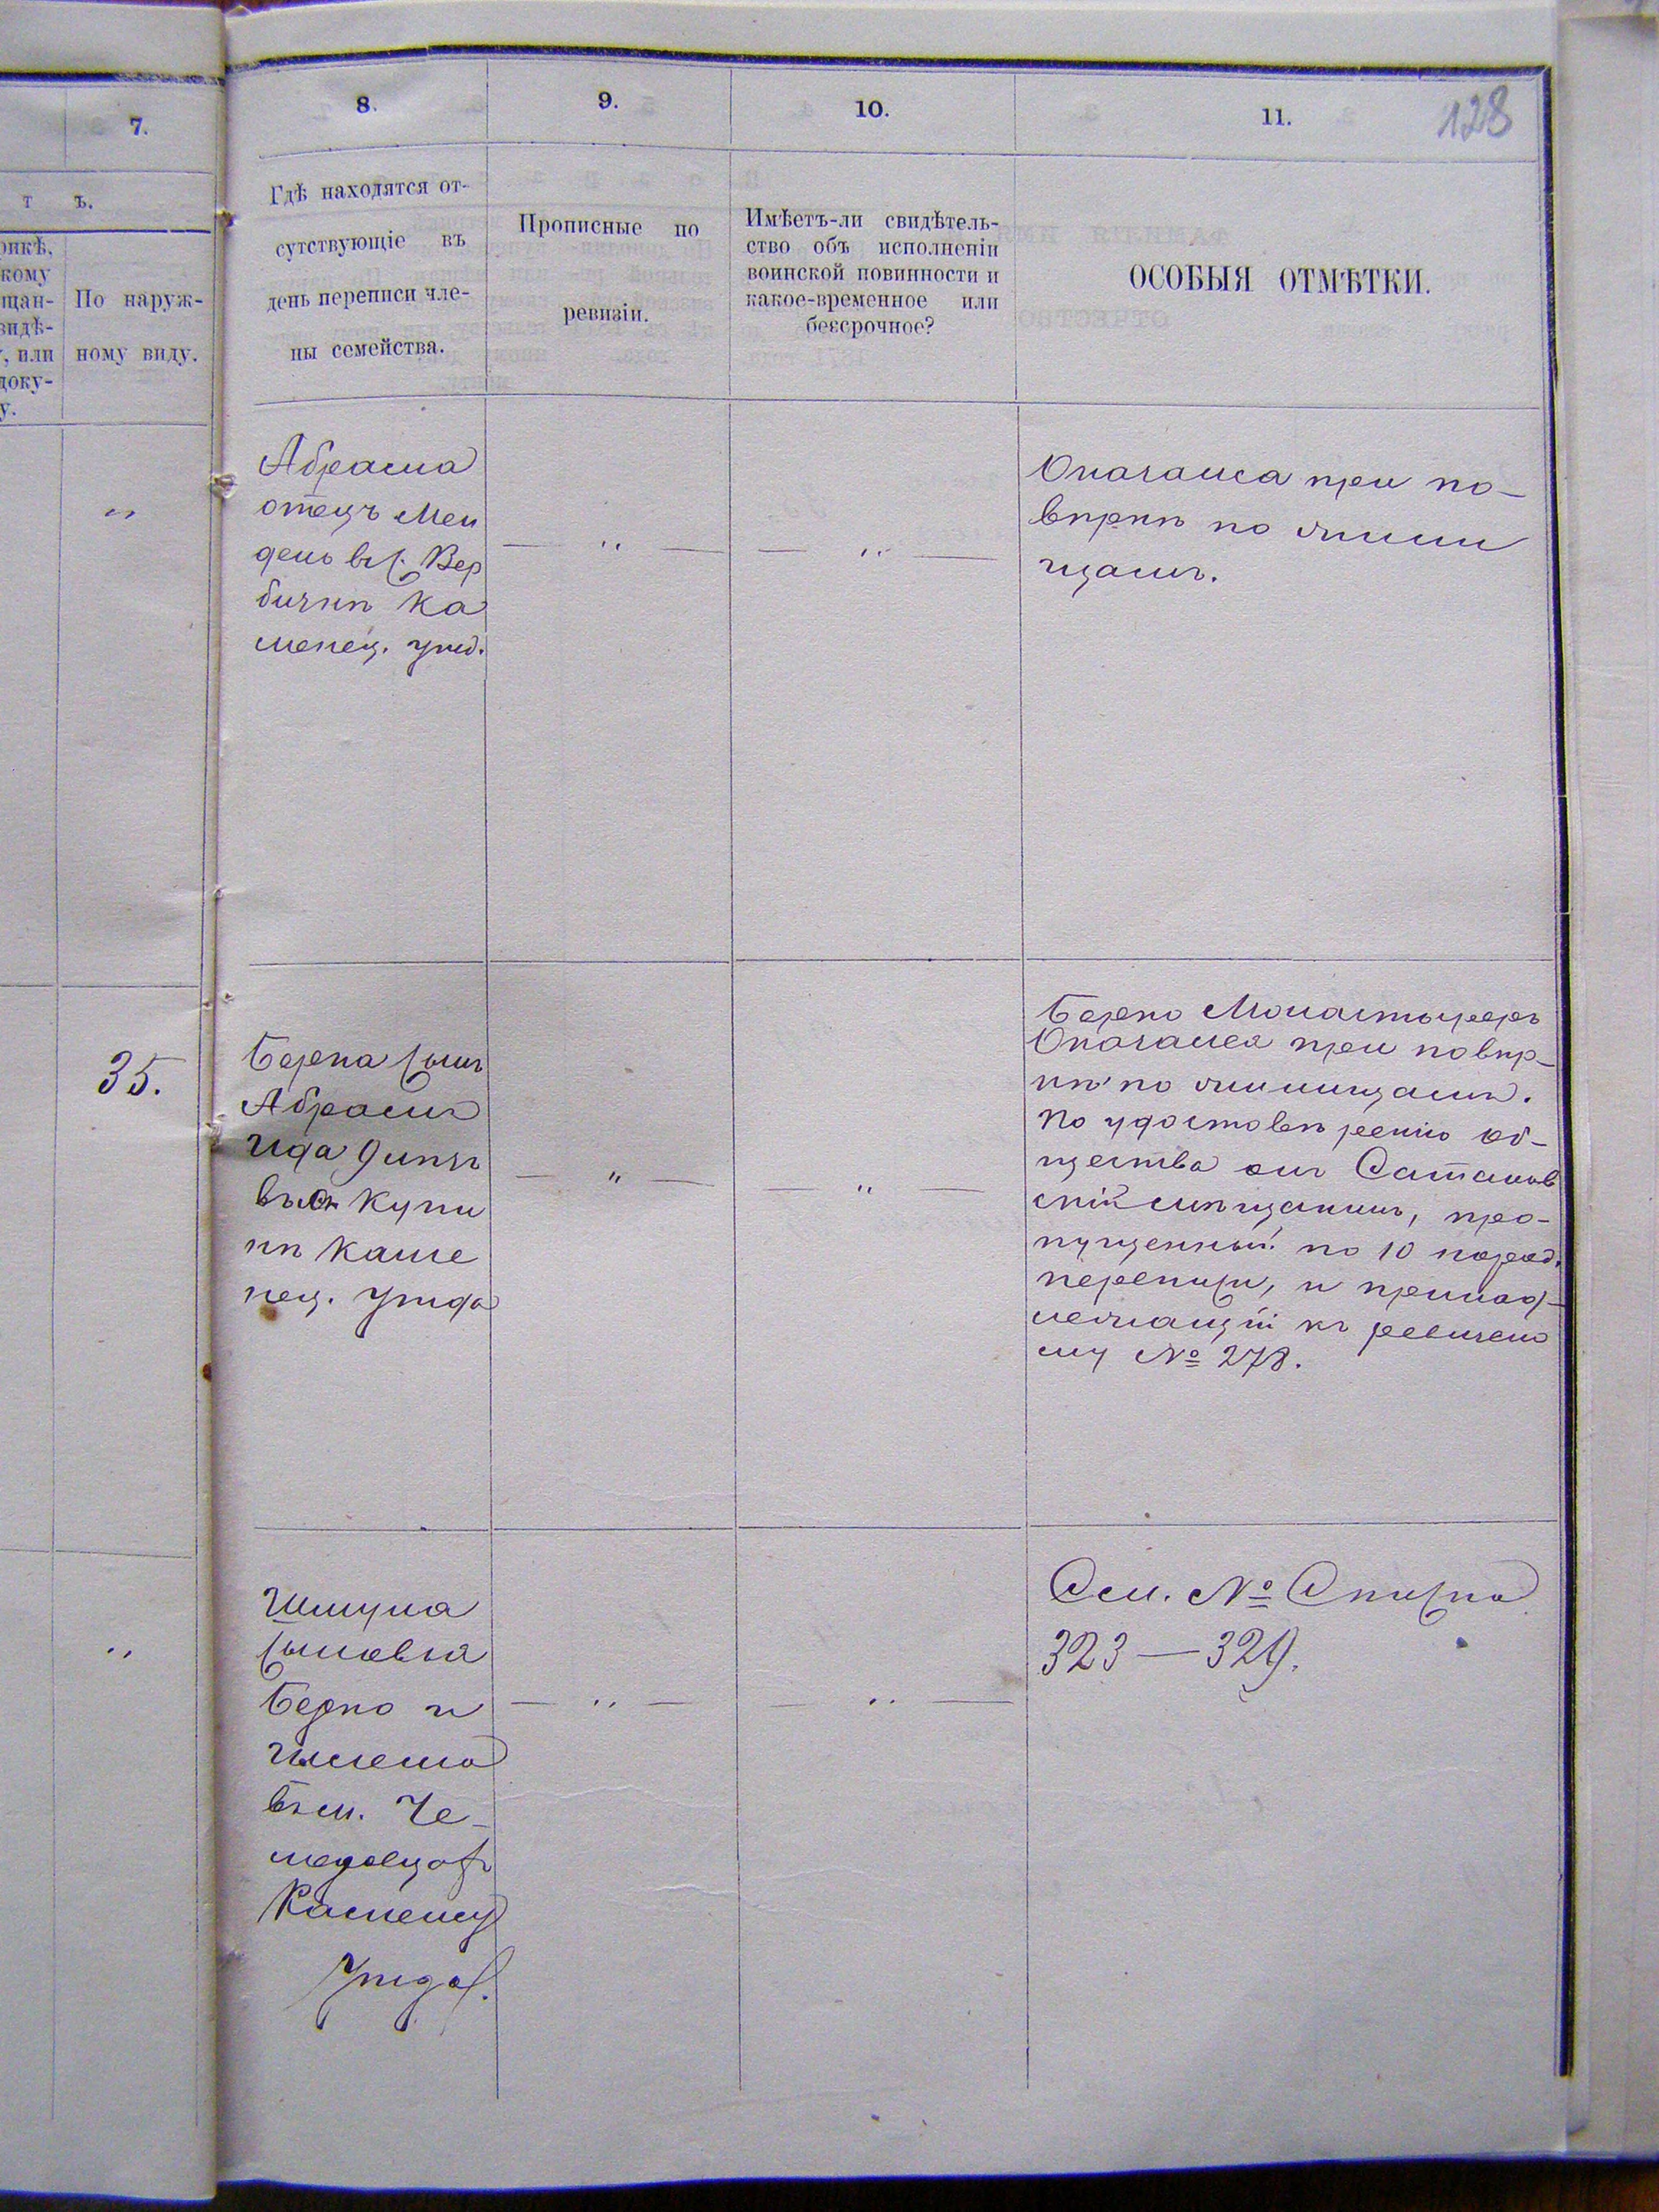 128
7.
8.
9.
10.
11.
т ъ.
рикѣ,
кому
щан-
видѣ-
, или
доку-
у.
По наруж-
ному виду.
Гдѣ находятся от-
сутствующіе въ
день переписи чле-
ны семейства.
Прописные по
ревизіи.
Имѣетъ-ли свидѣтель-
ство объ исполненіи
воинской повинности и
какое-временное или
безсрочное?
ОСОБЫЯ ОТМѢТКИ.
"
Абрама
отецъ Мен
дель въ с. Вер
бичкѣ Ка
менец. уѣзд.
— " —
— " —
Оказался при по-
вѣркѣ по жили
щамъ.
35.
Берка сынъ
Абрамъ
Ида
въ с. Купи
нѣ Каме
нец. Уѣзда
— " —
— " —
Берко Монастыреръ
Оказался при повѣр-
кѣ по жилищамъ.
По удостовѣренію об-
щества онъ Сатанов
скій мѣщанинъ, про-
пущенный по 10 народ.
переписи, и принад-
лежащій къ ревизско
му № 278.
"
Шмуля
сыновья
Берко и
въ м. Че-
меровцахъ
Каменец
Уѣзда.
— " —
— " —
См. № Списка
323 — 329.